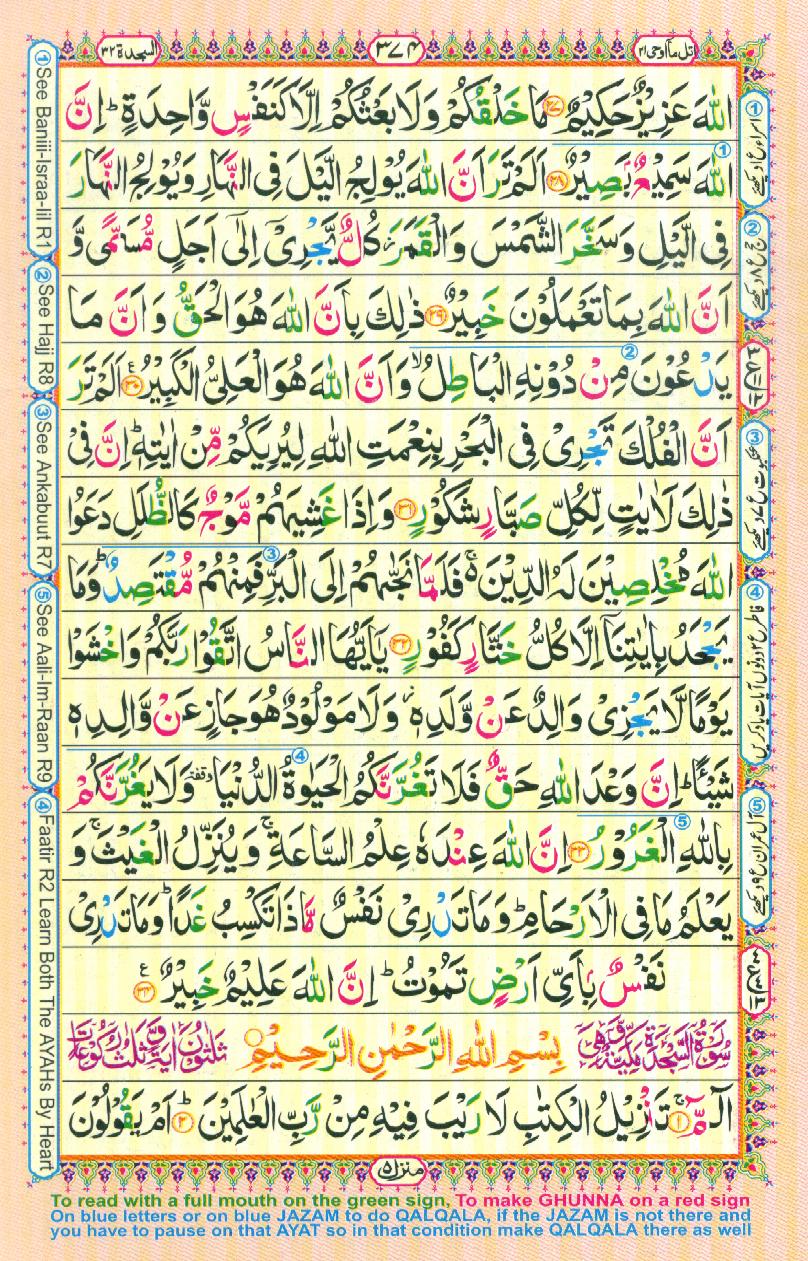 السجدة ۳۲
۳۷۴
اتل مآ اوحی ۲۱
اللّٰهَ عَزِيْزٌ حَكِيْمٌ ۲۷ مَا خَلْقُكُمْ وَلَا بَعْثُكُمْ اِلَّا كَنَفْسٍ وَّاحِدَةٍ ؕ اِنَّ
اللّٰهَ سَمِيْعٌۢ بَصِيْرٌ ۲۸ اَلَمْ تَرَ اَنَّ اللّٰهَ يُوْلِجُ الَّيْلَ فِى النَّهَارِ وَيُوْلِجُ النَّهَارَ
فِى الَّيْلِ وَسَخَّرَ الشَّمْسَ وَالْقَمَرَ ؗ كُلٌّ يَّجْرِىْۤ اِلٰٓى اَجَلٍ مُّسَمًّى وَّ
اَنَّ اللّٰهَ بِمَا تَعْمَلُوْنَ خَبِيْرٌ ۲۹ ذٰلِكَ بِاَنَّ اللّٰهَ هُوَ الْحَقُّ وَاَنَّ مَا
يَدْعُوْنَ مِنْ دُوْنِهِ الْبَاطِلُ ۙ وَاَنَّ اللّٰهَ هُوَ الْعَلِىُّ الْكَبِيْرُ ۳۰ اَلَمْ تَرَ
اَنَّ الْفُلْكَ تَجْرِىْ فِى الْبَحْرِ بِنِعْمَتِ اللّٰهِ لِيُرِيَكُمْ مِّنْ اٰيٰتِهٖ ؕ اِنَّ فِىْ
ذٰلِكَ لَاٰيٰتٍ لِّكُلِّ صَبَّارٍ شَكُوْرٍ ۳۱ وَاِذَا غَشِيَهُمْ مَّوْجٌ كَالظُّلَلِ دَعَوُا
اللّٰهَ مُخْلِصِيْنَ لَهُ الدِّيْنَ ۚ فَلَمَّا نَجّٰٮهُمْ اِلَى الْبَرِّ فَمِنْهُمْ مُّقْتَصِدٌ ؕ وَمَا
يَجْحَدُ بِاٰيٰتِنَاۤ اِلَّا كُلُّ خَتَّارٍ كَفُوْرٍ ۳۲ يٰۤاَيُّهَا النَّاسُ اتَّقُوْا رَبَّكُمْ وَاخْشَوْا
يَوْمًا لَّا يَجْزِىْ وَالِدٌ عَنْ وَّلَدِهٖ ؗ وَلَا مَوْلُوْدٌ هُوَ جَازٍ عَنْ وَّالِدِهٖ
شَيْـًٔا ؕ اِنَّ وَعْدَ اللّٰهِ حَقٌّ فَلَا تَغُرَّنَّكُمُ الْحَيٰوةُ الدُّنْيَا وقفة وَلَا يَغُرَّنَّكُمْ
بِاللّٰهِ الْغَرُوْرُ ۳۳ اِنَّ اللّٰهَ عِنْدَهٗ عِلْمُ السَّاعَةِ ۚ وَيُنَزِّلُ الْغَيْثَ ۚ وَ
يَعْلَمُ مَا فِى الْاَرْحَامِ ؕ وَمَا تَدْرِىْ نَفْسٌ مَّاذَا تَكْسِبُ غَدًا ؕ وَمَا تَدْرِىْ
نَفْسٌۢ بِاَىِّ اَرْضٍ تَمُوْتُ ؕ اِنَّ اللّٰهَ عَلِيْمٌ خَبِيْرٌ ۳۴
سُوْرَةُ السَّجْدَةِ مَكِّيَّةٌ وَّهِىَ بِسْمِ اللّٰهِ الرَّحْمٰنِ الرَّحِيْمِ ثَلٰثُوْنَ اٰيَةً وَّثَلٰثُ رُكُوْعَاتٍ
الٓمّٓ ۚ ۱ تَنْزِيْلُ الْكِتٰبِ لَا رَيْبَ فِيْهِ مِنْ رَّبِّ الْعٰلَمِيْنَ ؕ ۲ اَمْ يَقُوْلُوْنَ
منزل ۵
① See Baniii-Israa-Iil R1
② See Hajj R8
③ See Ankabuut R7
⑤ See Aali-Im-Raan R9
④ Faatir R2 Learn Both The AYAHs By Heart
To read with a full mouth on the green sign, To make GHUNNA on a red sign
On blue letters or on blue JAZAM to do QALQALA, if the JAZAM is not there and
you have to pause on that AYAT so in that condition make QALQALA there as well